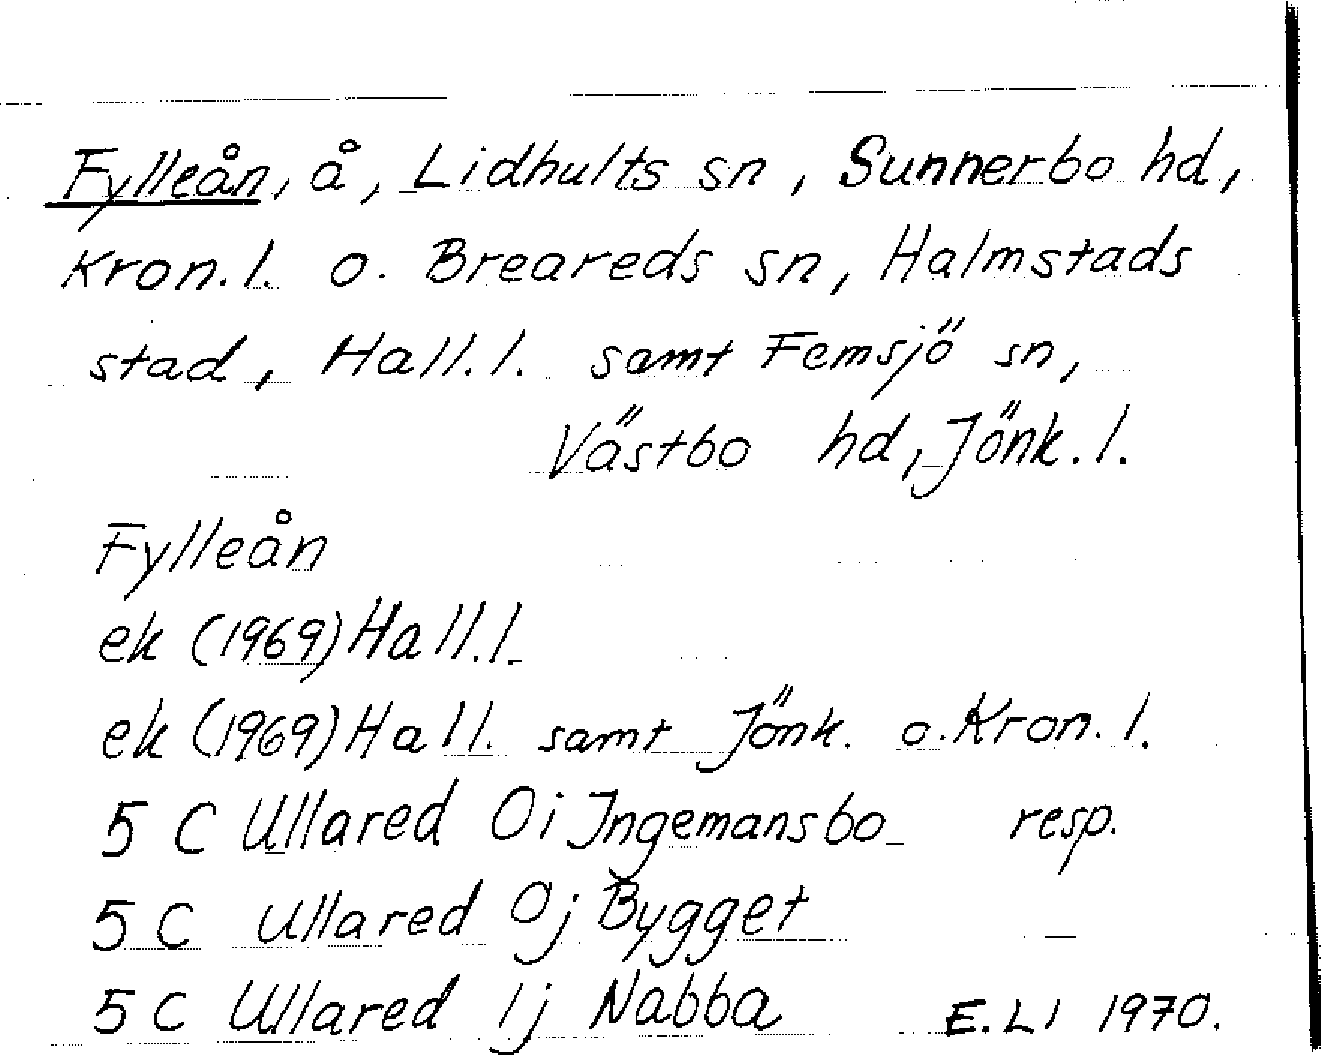 Fylleån, å, Lidhults sn, Sunnerbo hd,
Kron.l. o. Breareds sn, Halmstads
stad, Hall.l. samt Femsjö sn,
Västbo hd, Jönk.l.
Fylleån
ek (1969) Hall.l.
ek (1969) Hall. samt Jönk. o. Kron.l.
5 C Ullared 0i Ingemansbo resp.
5 C Ullared 0j Bygget
5 C Ullared 1j Nabba E.Ll 1970.